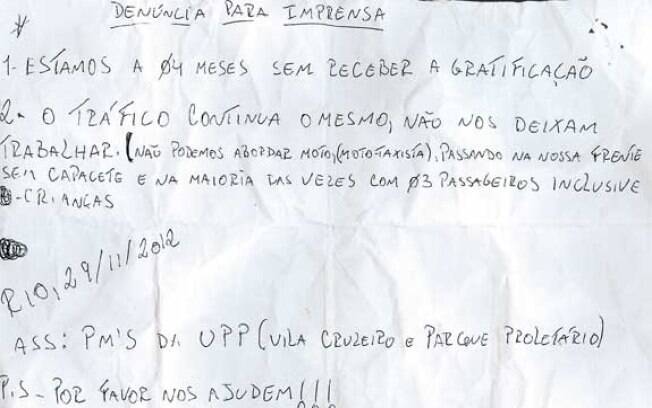 DENÚNCIA PARA IMPRENSA
1- ESTAMOS A 04 MESES SEM RECEBER A GRATIFICAÇÃO
2- O TRÁFICO CONTINUA O MESMO, NÃO NOS DEIXAM
TRABALHAR. (NÃO PODEMOS ABORDAR MOTO, (MOTO-TAXISTA), PASSANDO NA NOSSA FRENTE
SEM CAPACETE E NA MAIORIA DAS VEZES COM 03 PASSAGEIROS INCLUSIVE
-CRIANÇAS
RIO, 29/11/2012
ASS: PM'S DA UPP (VILA CRUZEIRO e PARQUE PROLETÁRIO)
P.S - POR FAVOR NOS AJUDEM!!!